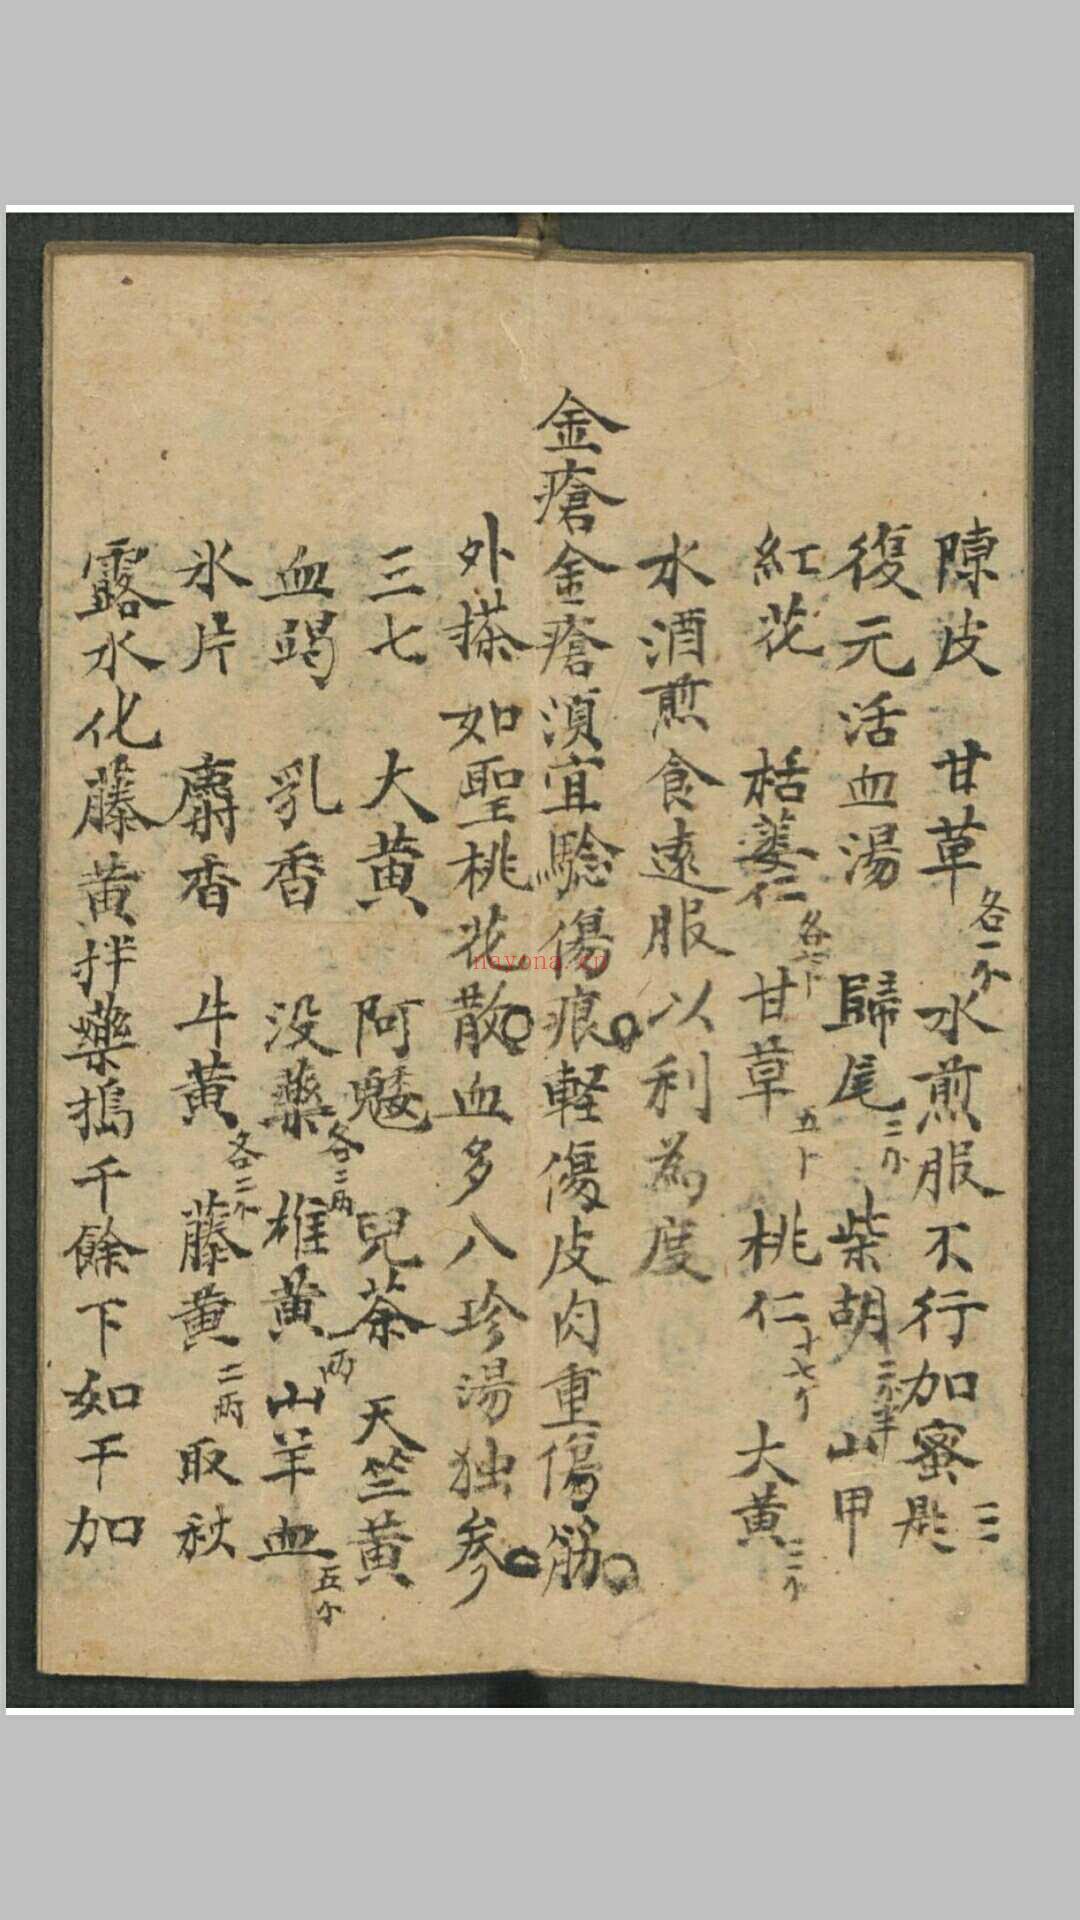 陳皮 甘草各一个 水煎服不行加蜜三匙
復元活血湯 歸尾二个 柴胡二个半 山甲
紅花 栝蔞仁各七卜 甘草五卜 桃仁十七个 大黄三个
水酒煎食遠服以利為度
金瘡金瘡湏宜驗傷痕軽傷皮肉重傷筋
外搽如聖桃花散血多八珍湯独參
三七 大黄 阿魏 兒茶 天竺黄
血竭 乳香 没藥各二兩 雄黄一兩 山羊血五个
氷片 麝香 牛黄各二个 藤黄二兩 取秋
露水化藤黄拌藥搗千餘下如干加
nayona.cn